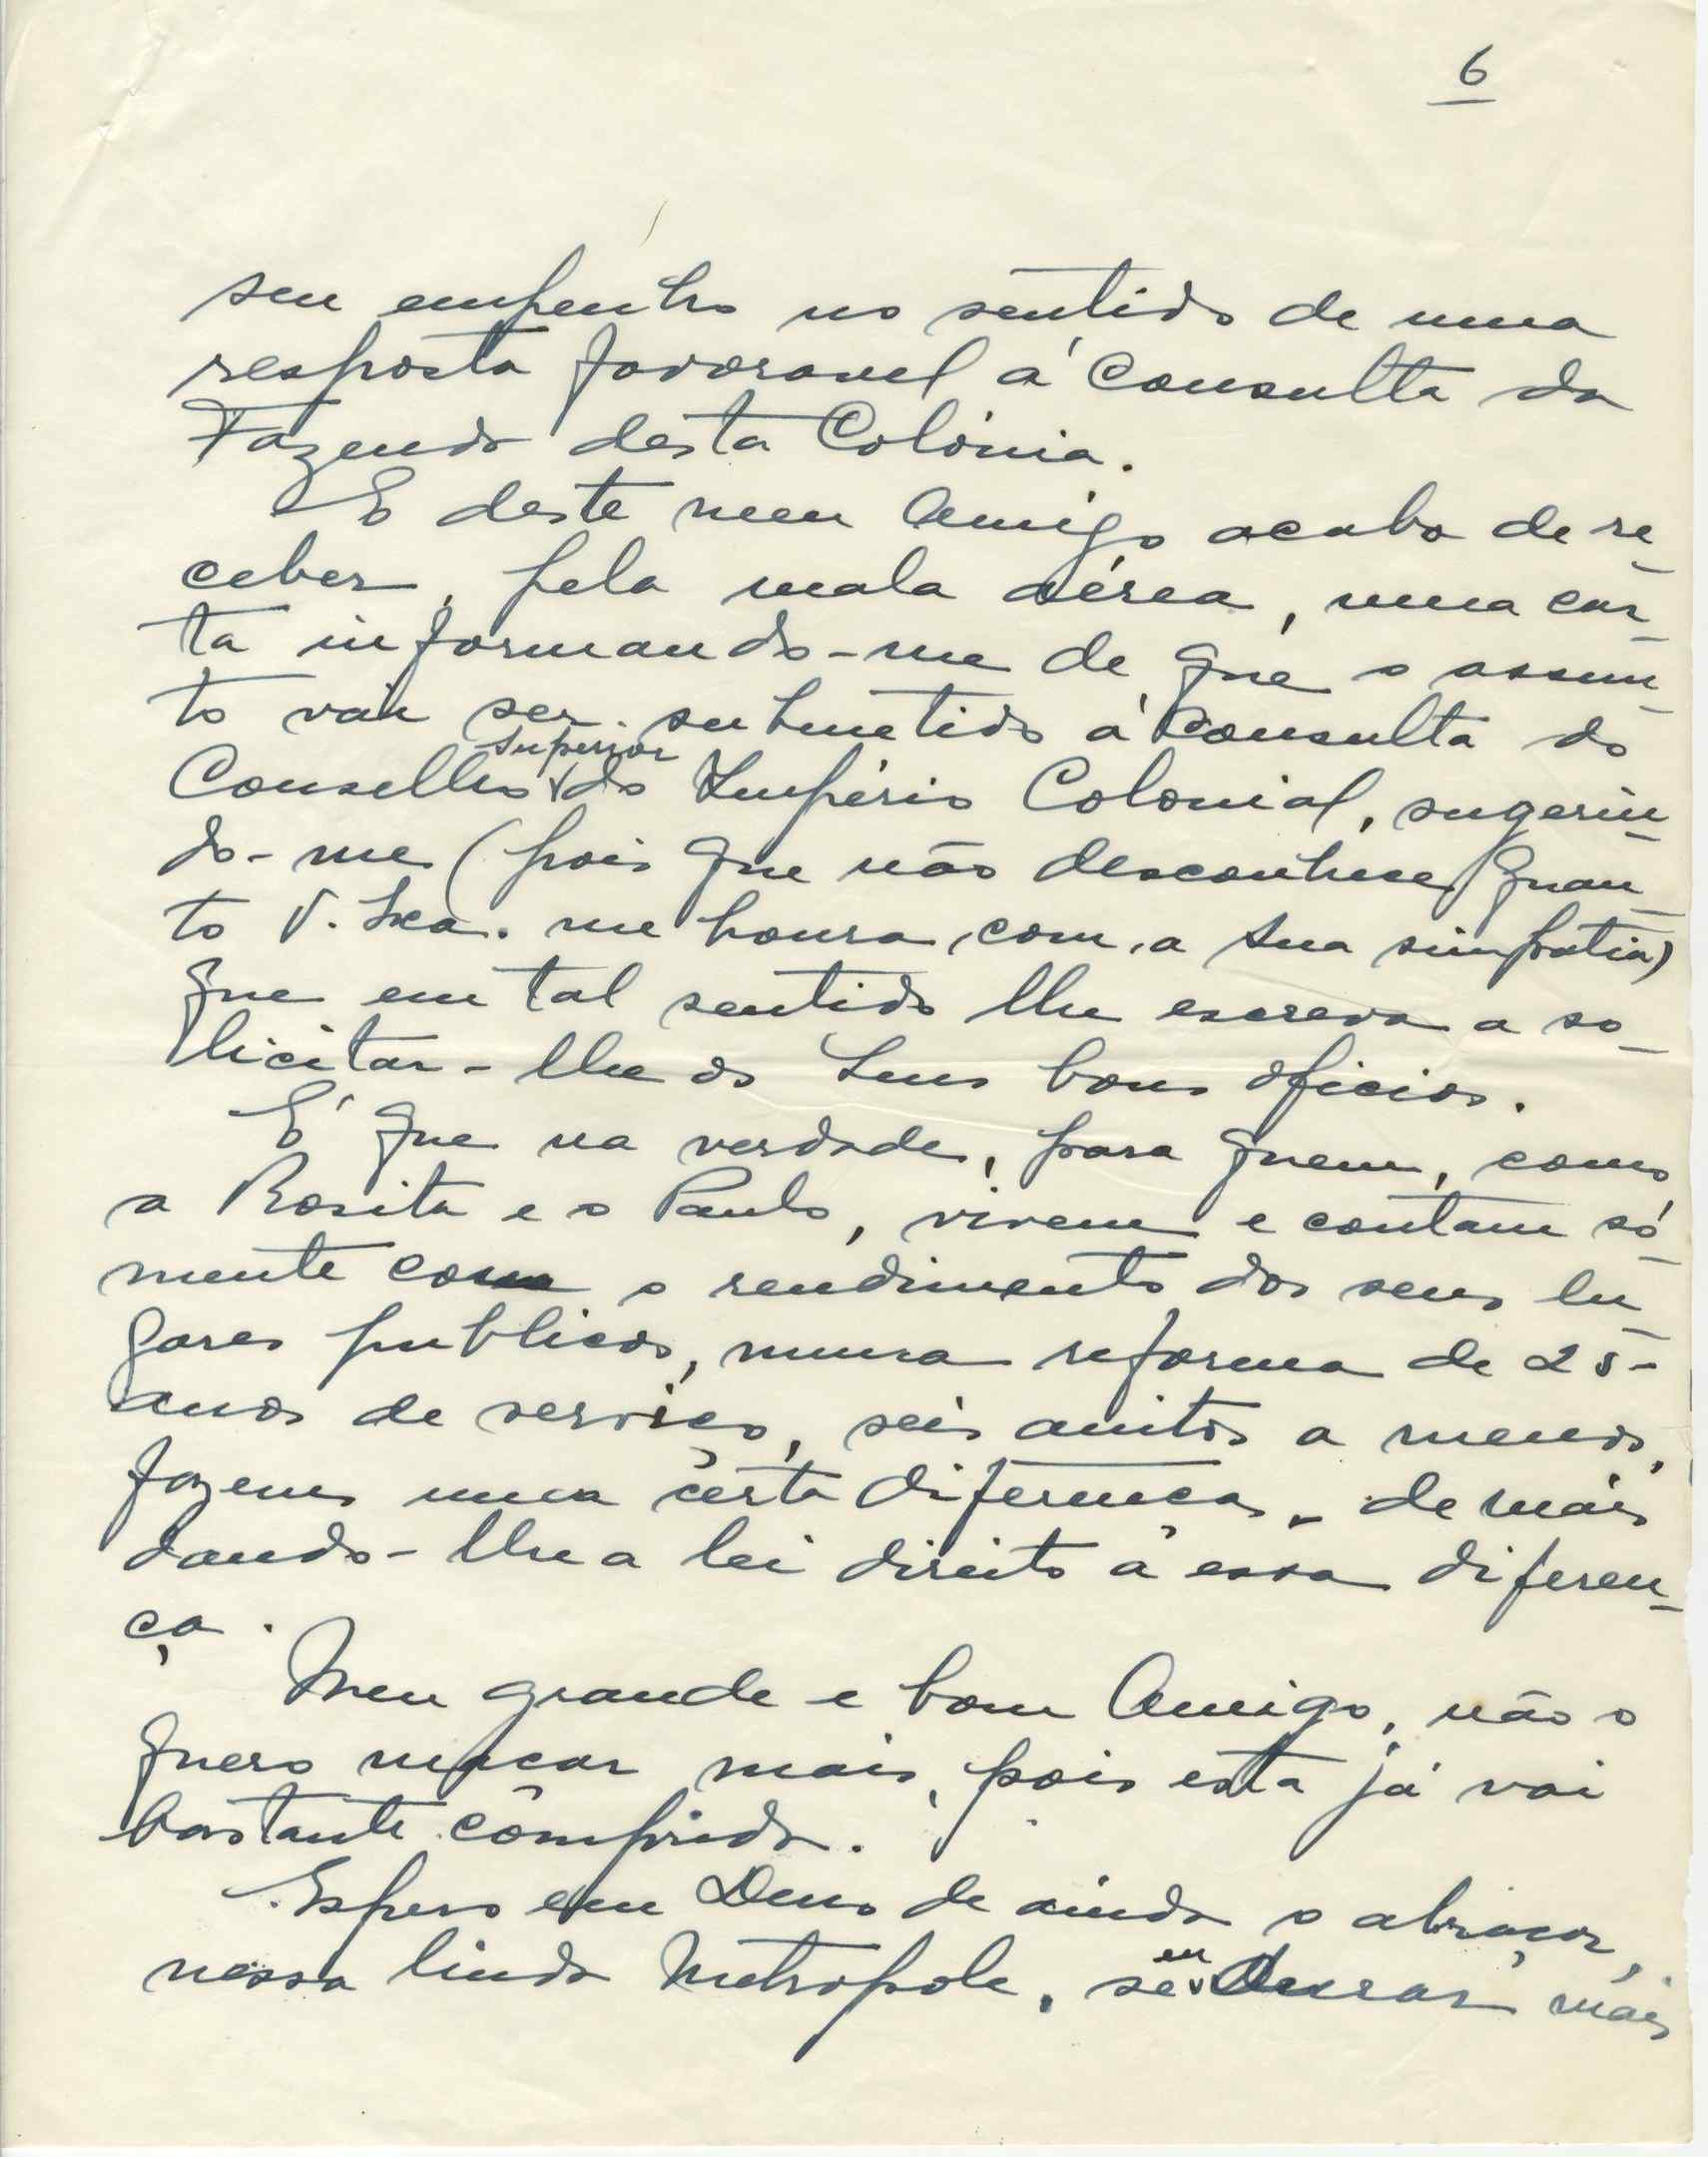 6
seu empenho no sentido de uma
resposta favoravel á consulta da
Fazenda desta Colónia.
E deste meu Amigo acabo de re-
ceber, pela mala aérea, uma car-
ta informando-me de que o assun-
to vai ser submetido á consulta do
Conselho superior do Império Colonial, sugerin-
do-me (pois que não desconhece quan-
to V. Exa. me honra com a sua simpatia)
que em tal sentido lhe escreva a so-
licitar-lhe os seus bons oficios.
É que na verdade, para quem, como
a Rosita e o Paulo, vivem e contam só-
mente com o rendimento dos seus lu-
gares publicos, numa reforma de 25
anos de serviço, seis anitos a menos,
fazem uma certa diferença, de mais
dando-lhe a lei direito a essa diferen-
ça.
Meu grande e bom Amigo, não o
quero maçar mais, pois esta já vai
bastante comprida.
Espero em Deus de ainda o abraçar,
nessa linda Metropole, se eu durar mais